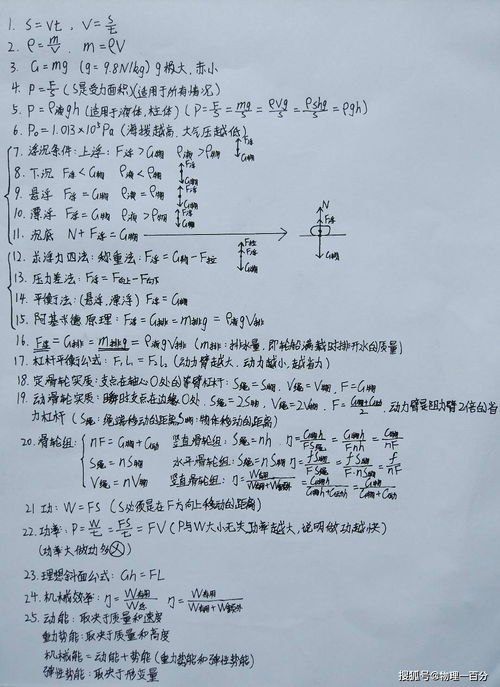 1. S=Vt, V=S/t
2. ρ=m/V, m=ρV
3. G=mg (g=9.8N/kg) g极大, 赤小
4. P=F/S (S是受力面积)(适用于所有情况)
5. P=ρ液gh (适用于液体,柱体) (P=F/S=mg/S=ρVg/S=ρShg/S=ρgh)
6. P₀=1.013×10⁵Pa (海拔越高,大气压越低)
7. 浮沉条件:上浮: F浮>G物 ρ液>ρ物 F浮 G物
8. 下沉 F浮<G物 ρ液<ρ物 F浮 G物
9. 悬浮 F浮=G物 ρ液=ρ物 F浮 G物
10. 漂浮 F浮=G物 ρ液>ρ物 F浮 G物
11. 沉底 N+F浮=G物 N F浮 G物
12. 求浮力四法:称重法: F浮=G物-F拉 F拉 F浮 G物
13. 压力差法: F浮=F向上-F向下
14. 平衡法:(悬浮,漂浮) F浮=G物
15. 阿基米德原理: F浮=G排=m排g=ρ液gV排
16. F浮=G排=m排g=ρ液gV排 (m排:排水量,即轮船满载时排开水的质量)
17. 杠杆平衡公式: F₁L₁=F₂L₂ (动力臂越大,动力越小,越省力)
18. 定滑轮实质:支点在轴心O处的等臂杠杆: S绳=S物, V绳=V物, F=G物
19. 动滑轮实质:瞬时支点在边缘O处, S绳=2S物, V绳=2V物, F=(G物+G动)/2, 动力臂是阻力臂2倍的省
力杠杆 (S绳:绳端移动的距离,S物:物体移动的距离)
20. 滑轮组: nF=G物+G动 竖直滑轮组: S绳=nh, η=G物h/FS绳=G物h/Fnh=G物/nF
S绳=nS物 水平滑轮组: S绳=nS物 η=fS物/FS绳=fS物/F·nS物=f/nF
V绳=nV物 竖直滑轮组: η=W有用/(W有用+W额外)=G物h/(G物h+G动h)=G物/(G物+G动)
21 功: W=FS (S必须是在F方向上移动的距离)
22. 功率: P=W/t=FS/t=FV (P与W大小无关,功率越大,说明做功越快)
(功率大做功多⊗)
23. 理想斜面公式: Gh=FL
24. 机械效率: η=W有用/W总 η=W有用/(W有用+W额外)
25. 动能:取决于质量和速度
重力势能:取决于质量和高度
机械能=动能+势能(重力势能和弹性势能)
弹性势能:取决于形变量
搜狐号@物理一百分